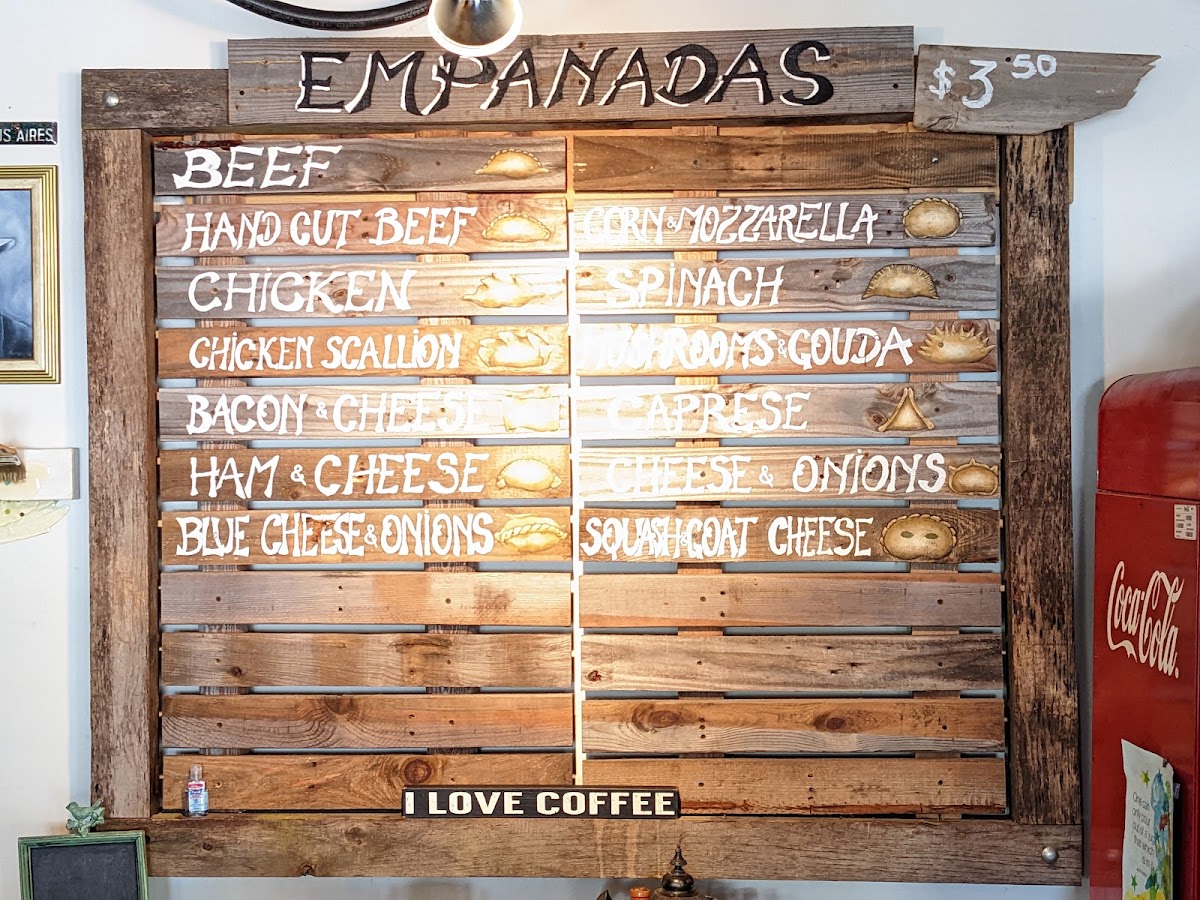 EMPANADAS
$3.50
US AIRES
BEEF
HAND CUT BEEF
CHICKEN
CHICKEN SCALLION
BACON & CHEESE
HAM & CHEESE
BLUE CHEESE & ONIONS
CORN & MOZZARELLA
SPINACH
MUSHROOMS & GOUDA
CAPRESE
CHEESE & ONIONS
SQUASH & GOAT CHEESE
I LOVE COFFEE
Coca-Cola